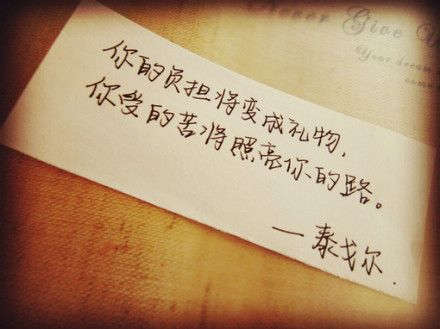 Never Give
Your dream
come
你的负担将变成礼物，
你受的苦将照亮你的路。
—泰戈尔.